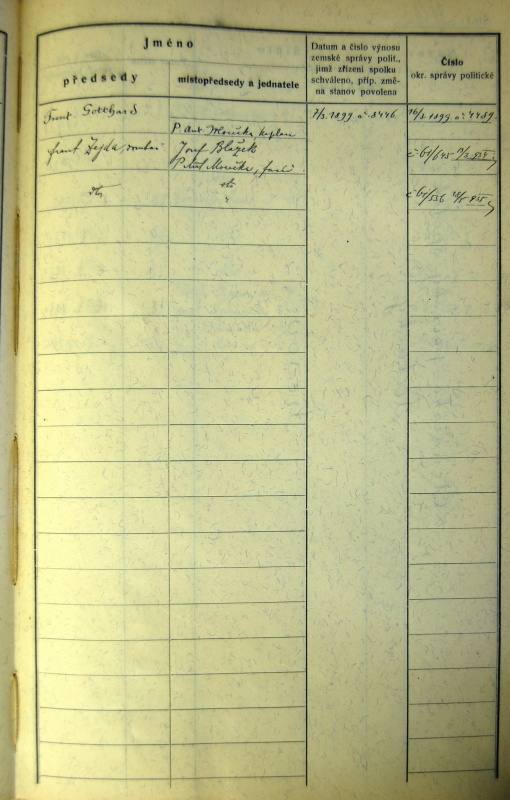 Jméno
předsedy
místopředsedy a jednatele
Datum a číslo výnosu
zemské správy polit.,
jímž zřízení spolku
schváleno, příp. změ-
na stanov povolena
Číslo
okr. správy politické
Frant. Gotthard
7/3. 1899 č. 8446.
16/3. 1899. č. 4489.
P. Ant. kaplan
Frant. Zejda,
Josef Blažek
P. Ant.
č. 61/645
dto
dto
"
č. 61/536